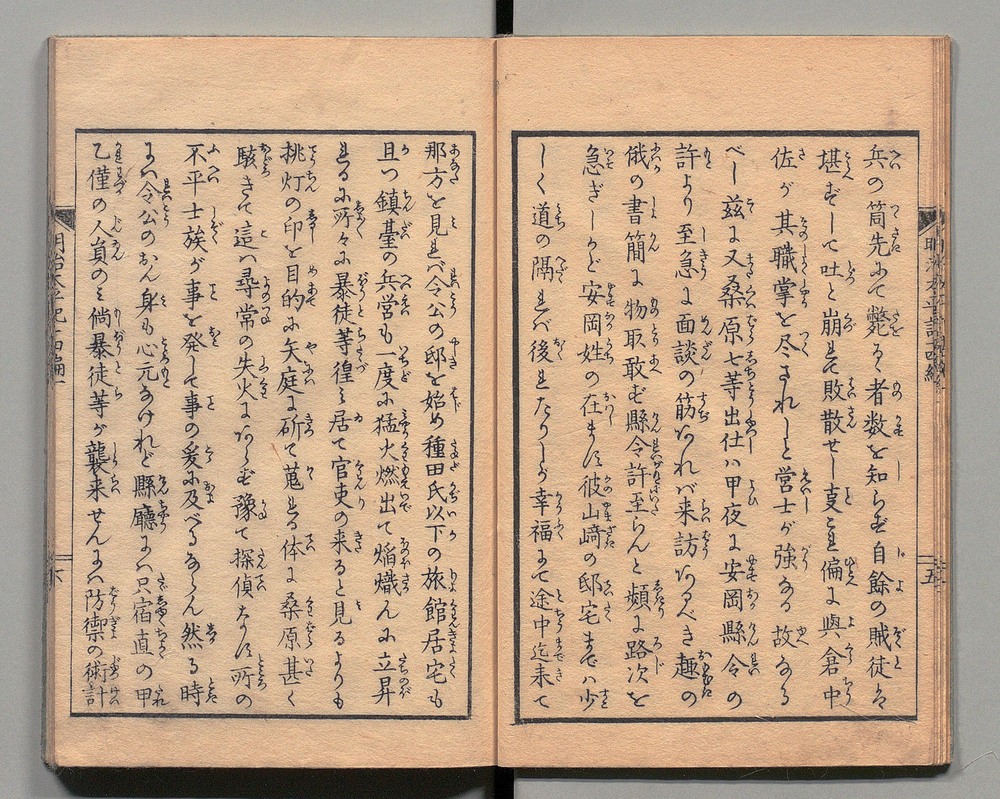 兵の筒先にて斃るゝ者数を知らず自餘の賊徒は
堪ずして吐と崩れて敗散せし支これ偏に與倉中
佐が其職掌を尽されしと営士が強なる故なる
べし茲に又桑原七等出仕ハ甲夜に安岡縣令の
許より至急に面談の筋あれバ来訪あるべき趣の
俄の書簡に物取敢ず縣令許至らんと頻に路次を
急ぎしかど安岡姓の在ます彼山﨑の邸宅までハ少
しく道の隔れバ後れたりしが幸福にて途中迄来て
那方を見れバ令公の邸を始め種田氏以下の旅館居宅も
且つ鎮臺の兵営も一度に猛火燃出て焔熾んに立昇
るに所々に暴徒等徨ミ居て官吏の来ると見るよりも
挑灯の印を目的に矢庭に斫て蒐る体に桑原甚く
駭きて這ハ尋常の失火にあらず豫て探偵なす所の
不平士族が事を発して事の爰に及べるならん然る時
にハ令公のおん身も心元なけれど縣廳にハ只宿直の甲
乙僅の人員のミ倘暴徒等が襲来せんにハ防禦の術計